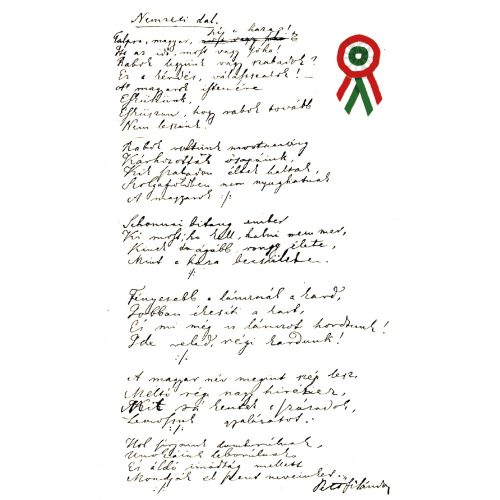 Nemzeti dal.
Talpra, magyar, hí a haza!
Itt az idő, most vagy soha!
Rabok legyünk vagy szabadok?
Ez a kérdés, válasszatok! –
A magyarok istenére
Esküszünk,
Esküszünk, hogy rabok tovább
Nem leszünk!
Rabok voltunk mostanáig
Kárhozottak ősapáink,
Kik szabadon éltek haltak,
Szolgaföldben nem nyughatnak
A magyarok :/:
Sehonnai bitang ember
Ki most, ha kell, halni nem mer,
Kinek drágább rongy élete,
Mint a haza becsülete.
:/:
Fényesebb a láncznál a kard,
Jobban ékesíti a kart,
És mi még is lánczot hordtunk!
Ide veled, régi kardunk!
:/:
A magyar név megint szép lesz
Méltó régi nagy hiréhez,
Mit rá kentek a századok,
Lemossuk gyalázatot.
:/:
Hol sírjaink domborulnak,
Unokáink leborulnak
És áldó imádság mellett
Mondják el szent neveinket
Petőfi Sándor